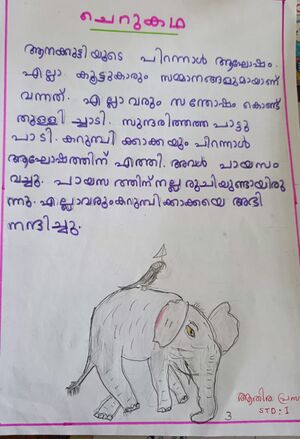 ചെറുകഥ
ആനക്കുട്ടിയുടെ പിറന്നാൾ ആഘോഷം.
എല്ലാ കൂട്ടുകാരും സമ്മാനങ്ങളുമായാണ്
വന്നത്. എല്ലാവരും സന്തോഷം കൊണ്ട്
തുള്ളി ചാടി. സുന്ദരിത്തത്ത പാട്ടു
പാടി. കറുമ്പി ക്കാക്കയും പിറന്നാൾ
ആഘോഷത്തിന് എത്തി. അവൾ പായസം
വച്ചു. പായസത്തിന് നല്ല രുചിയുണ്ടായിരു
ന്നു. എല്ലാവരും കറുമ്പിക്കാക്കയെ അഭി
നന്ദിച്ചു.
ആതിര പ്രസ
STD: I
3